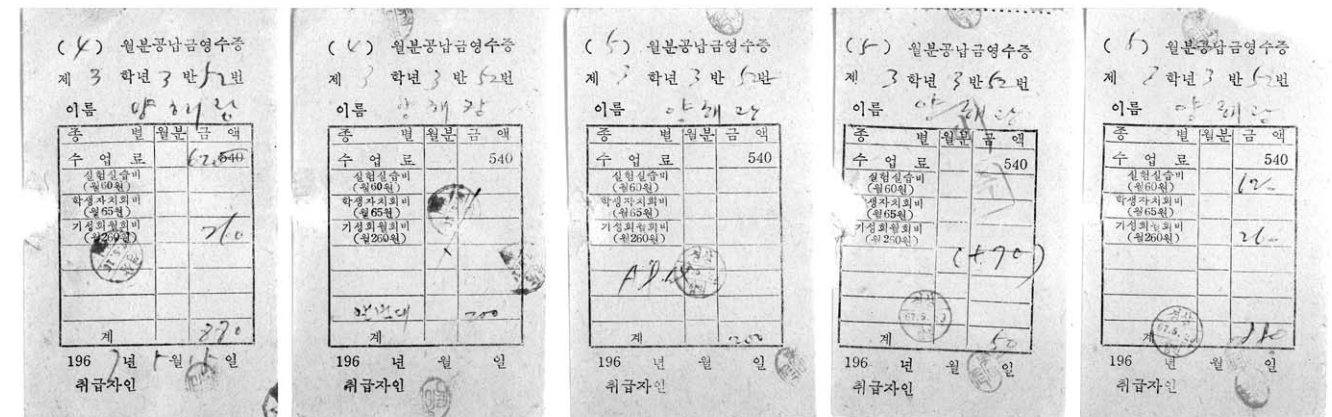 (4) 월분공납금영수증
제 3 학년 3 반 52번
이름 양해
종 별 월분 금 액
수 업 료 540
실험실습비
(월60원)
학생자치회비
(월65원)
기성회월회비
(월260원) 260
계
196 7 년 월 일
취급자인
(4) 월분공납금영수증
제 3 학년 3 반 52번
이름 양해
종 별 월분 금 액
수 업 료 540
실험실습비
(월60원)
학생자치회비
(월65원)
기성회월회비
(월260원)
200
계
196 년 월 일
취급자인
(5) 월분공납금영수증
제 3 학년 3 반 52번
이름 양해
종 별 월분 금 액
수 업 료 540
실험실습비
(월60원)
학생자치회비
(월65원)
기성회월회비
(월260원)
계 200
196 년 월 일
취급자인
(5) 월분공납금영수증
제 3 학년 3 반 52번
이름 양해
종 별 월분 금 액
수 업 료 540
실험실습비
(월60원)
학생자치회비
(월65원)
기성회월회비
(월260원)
계 50
196 년 월 일
취급자인
(5) 월분공납금영수증
제 3 학년 3 반 52번
이름 양해
종 별 월분 금 액
수 업 료 540
실험실습비
(월60원)
학생자치회비
(월65원)
기성회월회비
(월260원)
계
196 년 월 일
취급자인